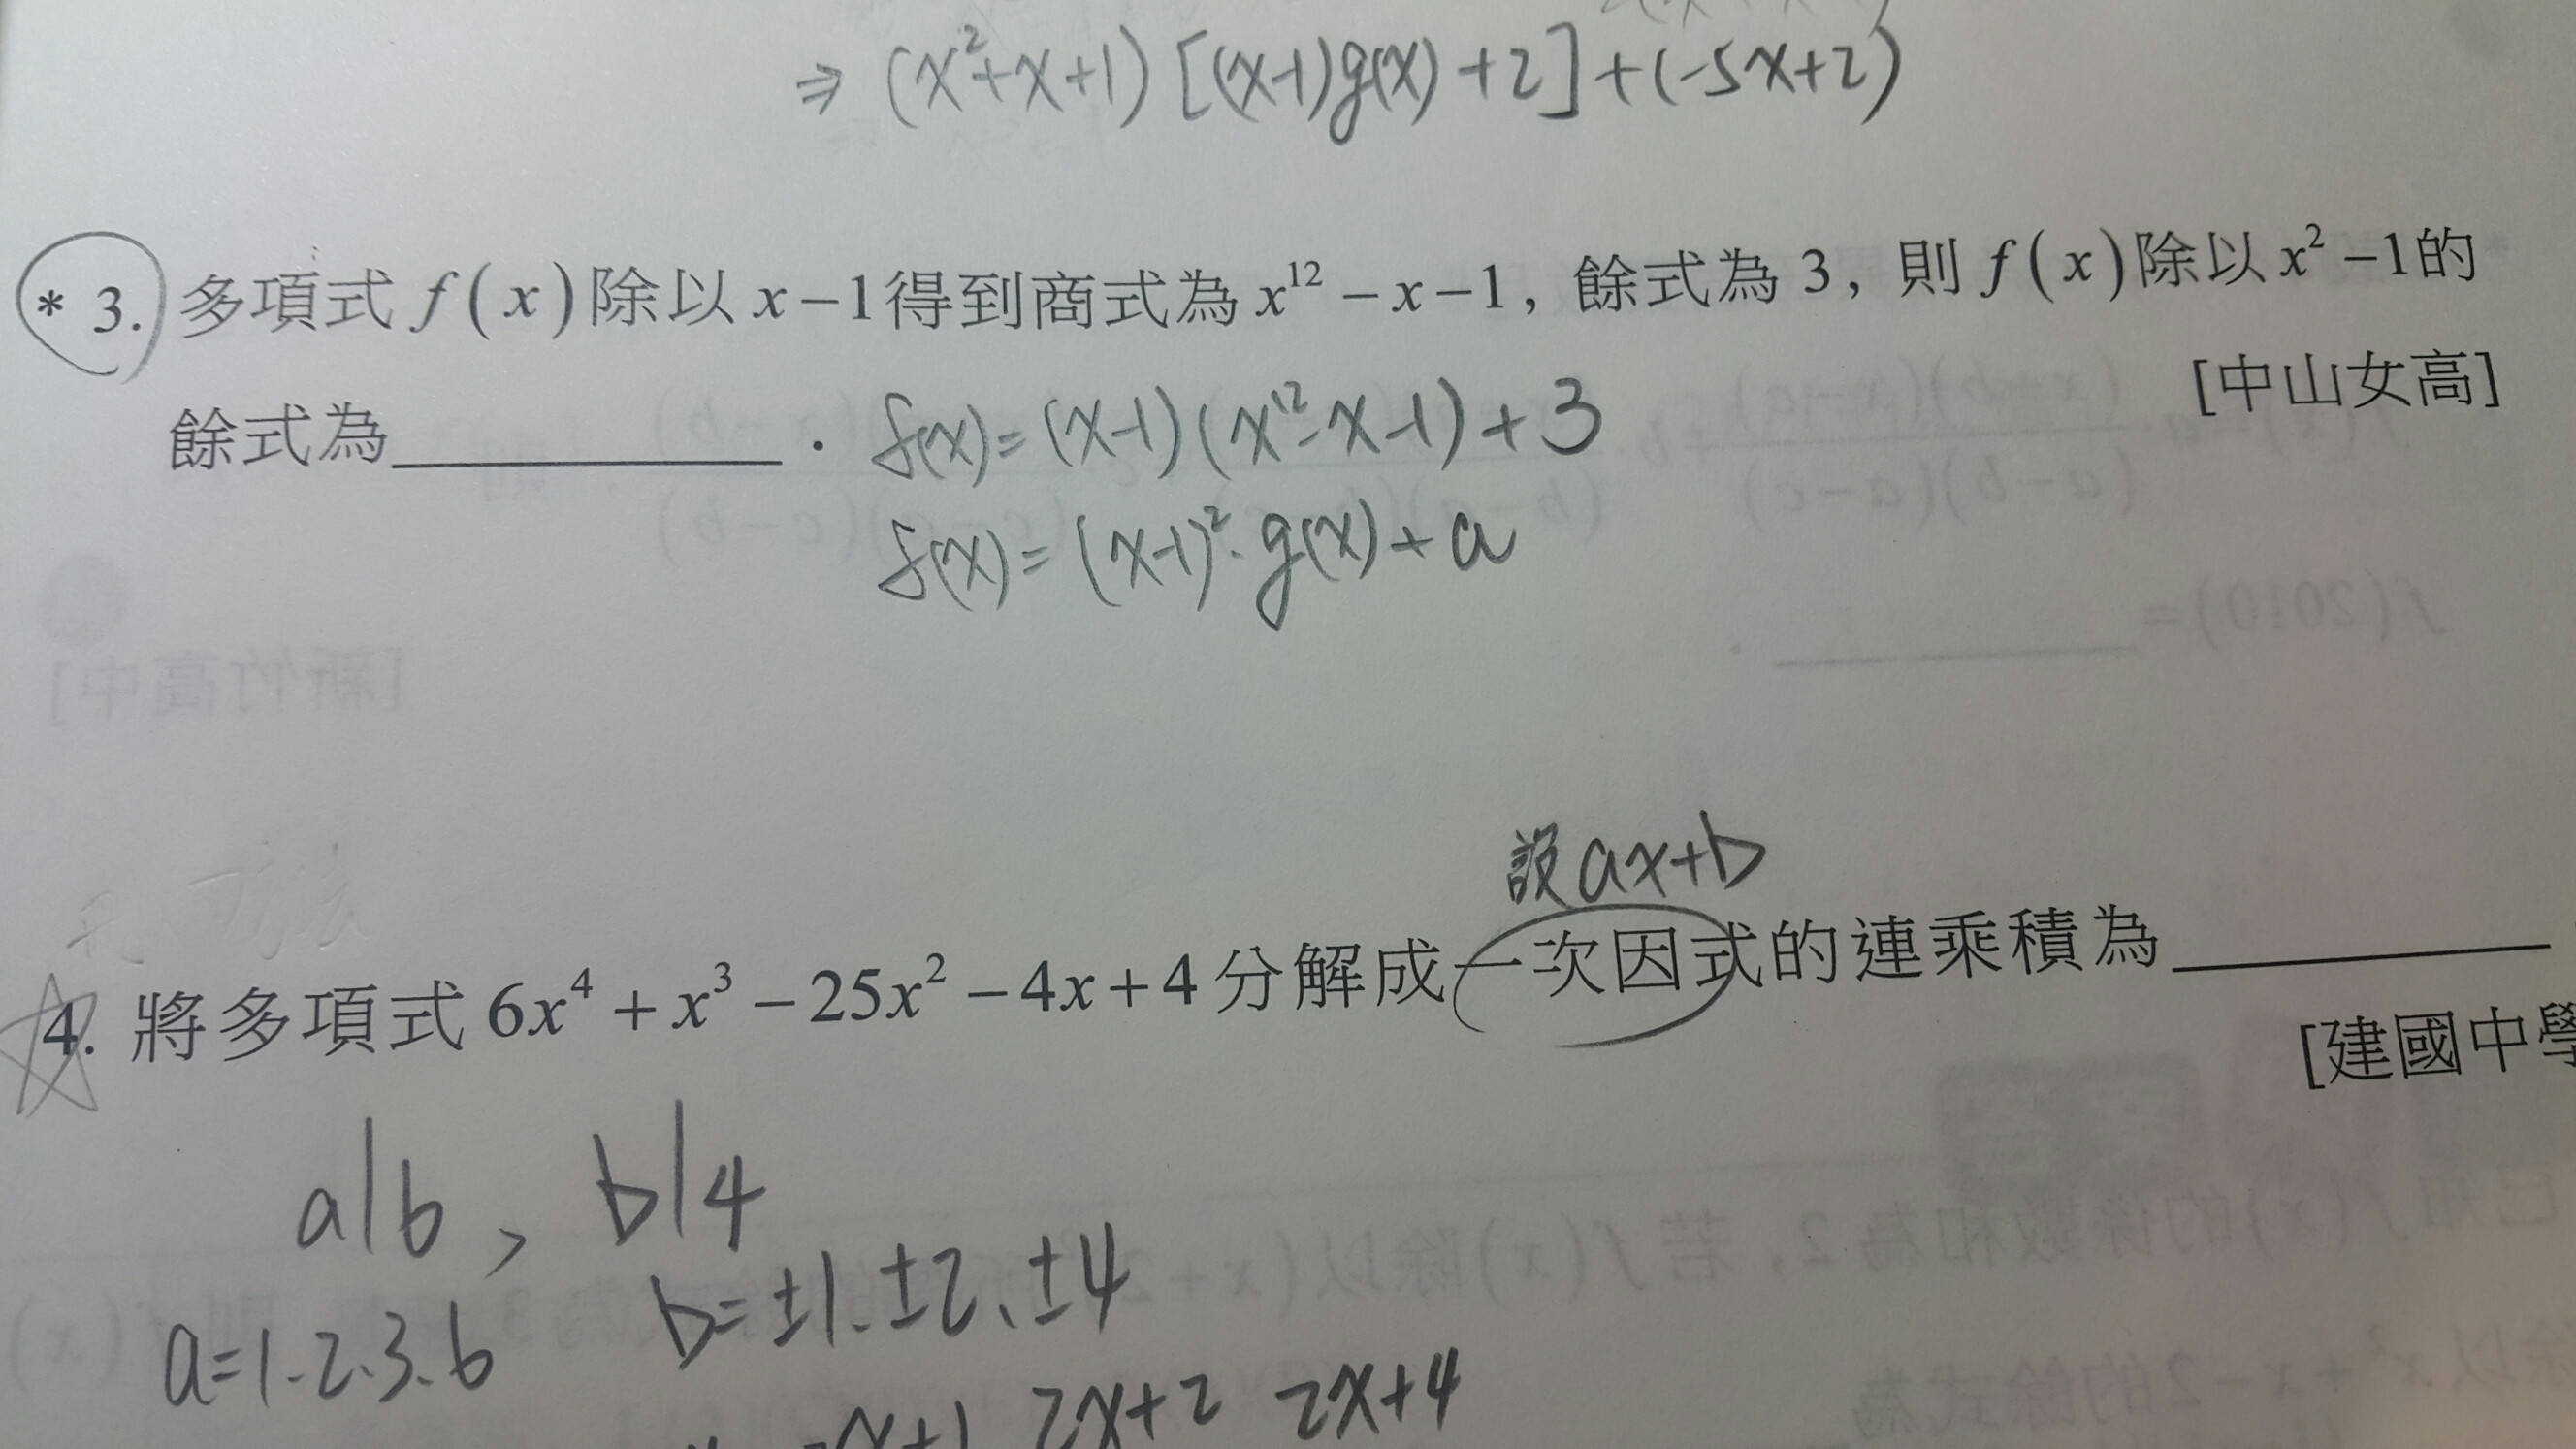 ⇒ (x²+x+1) [(x-1)g(x)+2]+(-5x+2)
* 3. 多項式 f(x) 除以 x−1 得到商式為 x¹² − x − 1, 餘式為 3, 則 f(x) 除以 x² −1 的
[中山女高]
餘式為__________. f(x)= (x-1)(x¹²-x-1)+3
f(x)= (x-1)²·g(x)+a
設 ax+b
4. 將多項式 6x⁴ + x³ − 25x² − 4x + 4 分解成一次因式的連乘積為__________
[建國中學
a|6 , b|4
a=1.2.3.6 b=±1.±2.±4
x+1 2x+2 2x+4